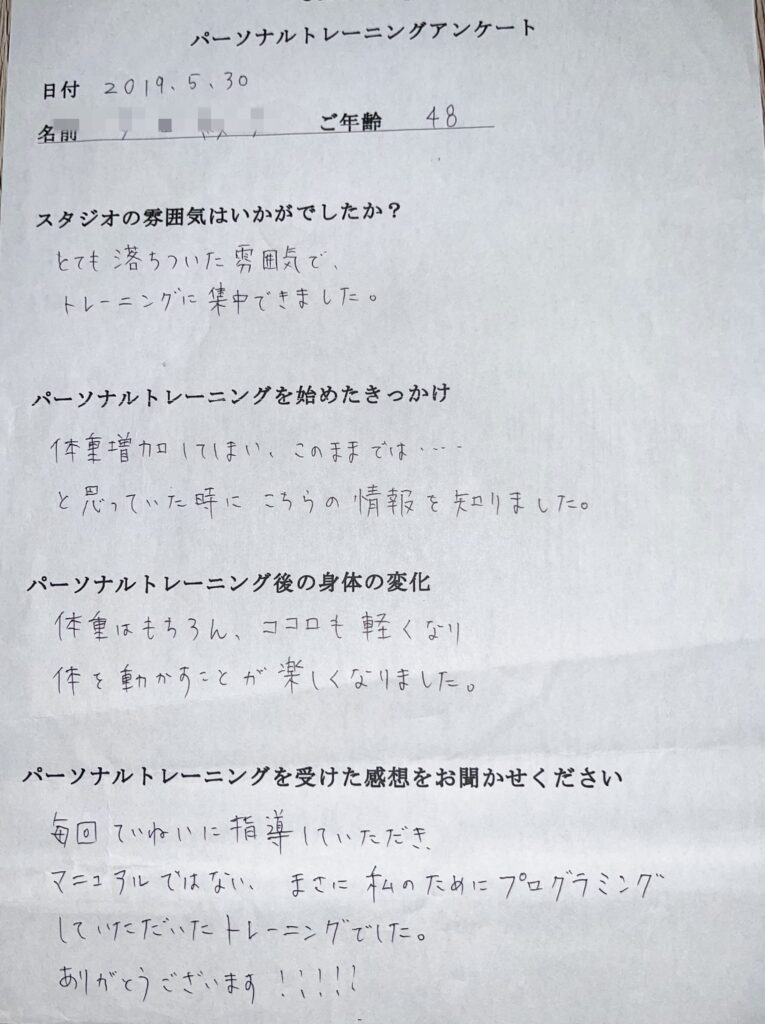 パーソナルトレーニングアンケート
日付 2019.5.30
名前 ご年齢 48
スタジオの雰囲気はいかがでしたか？
とても落ちついた雰囲気で、
トレーニングに集中できました。
パーソナルトレーニングを始めたきっかけ
体重増加してしまい、このままでは・・・・
と思っていた時にこちらの情報を知りました。
パーソナルトレーニング後の身体の変化
体重はもちろん、ココロも軽くなり
体を動かすことが楽しくなりました。
パーソナルトレーニングを受けた感想をお聞かせください
毎回ていねいに指導していただき、
マニュアルではない、まさに私のためにプログラミング
していただいたトレーニングでした。
ありがとうございます！！！！！